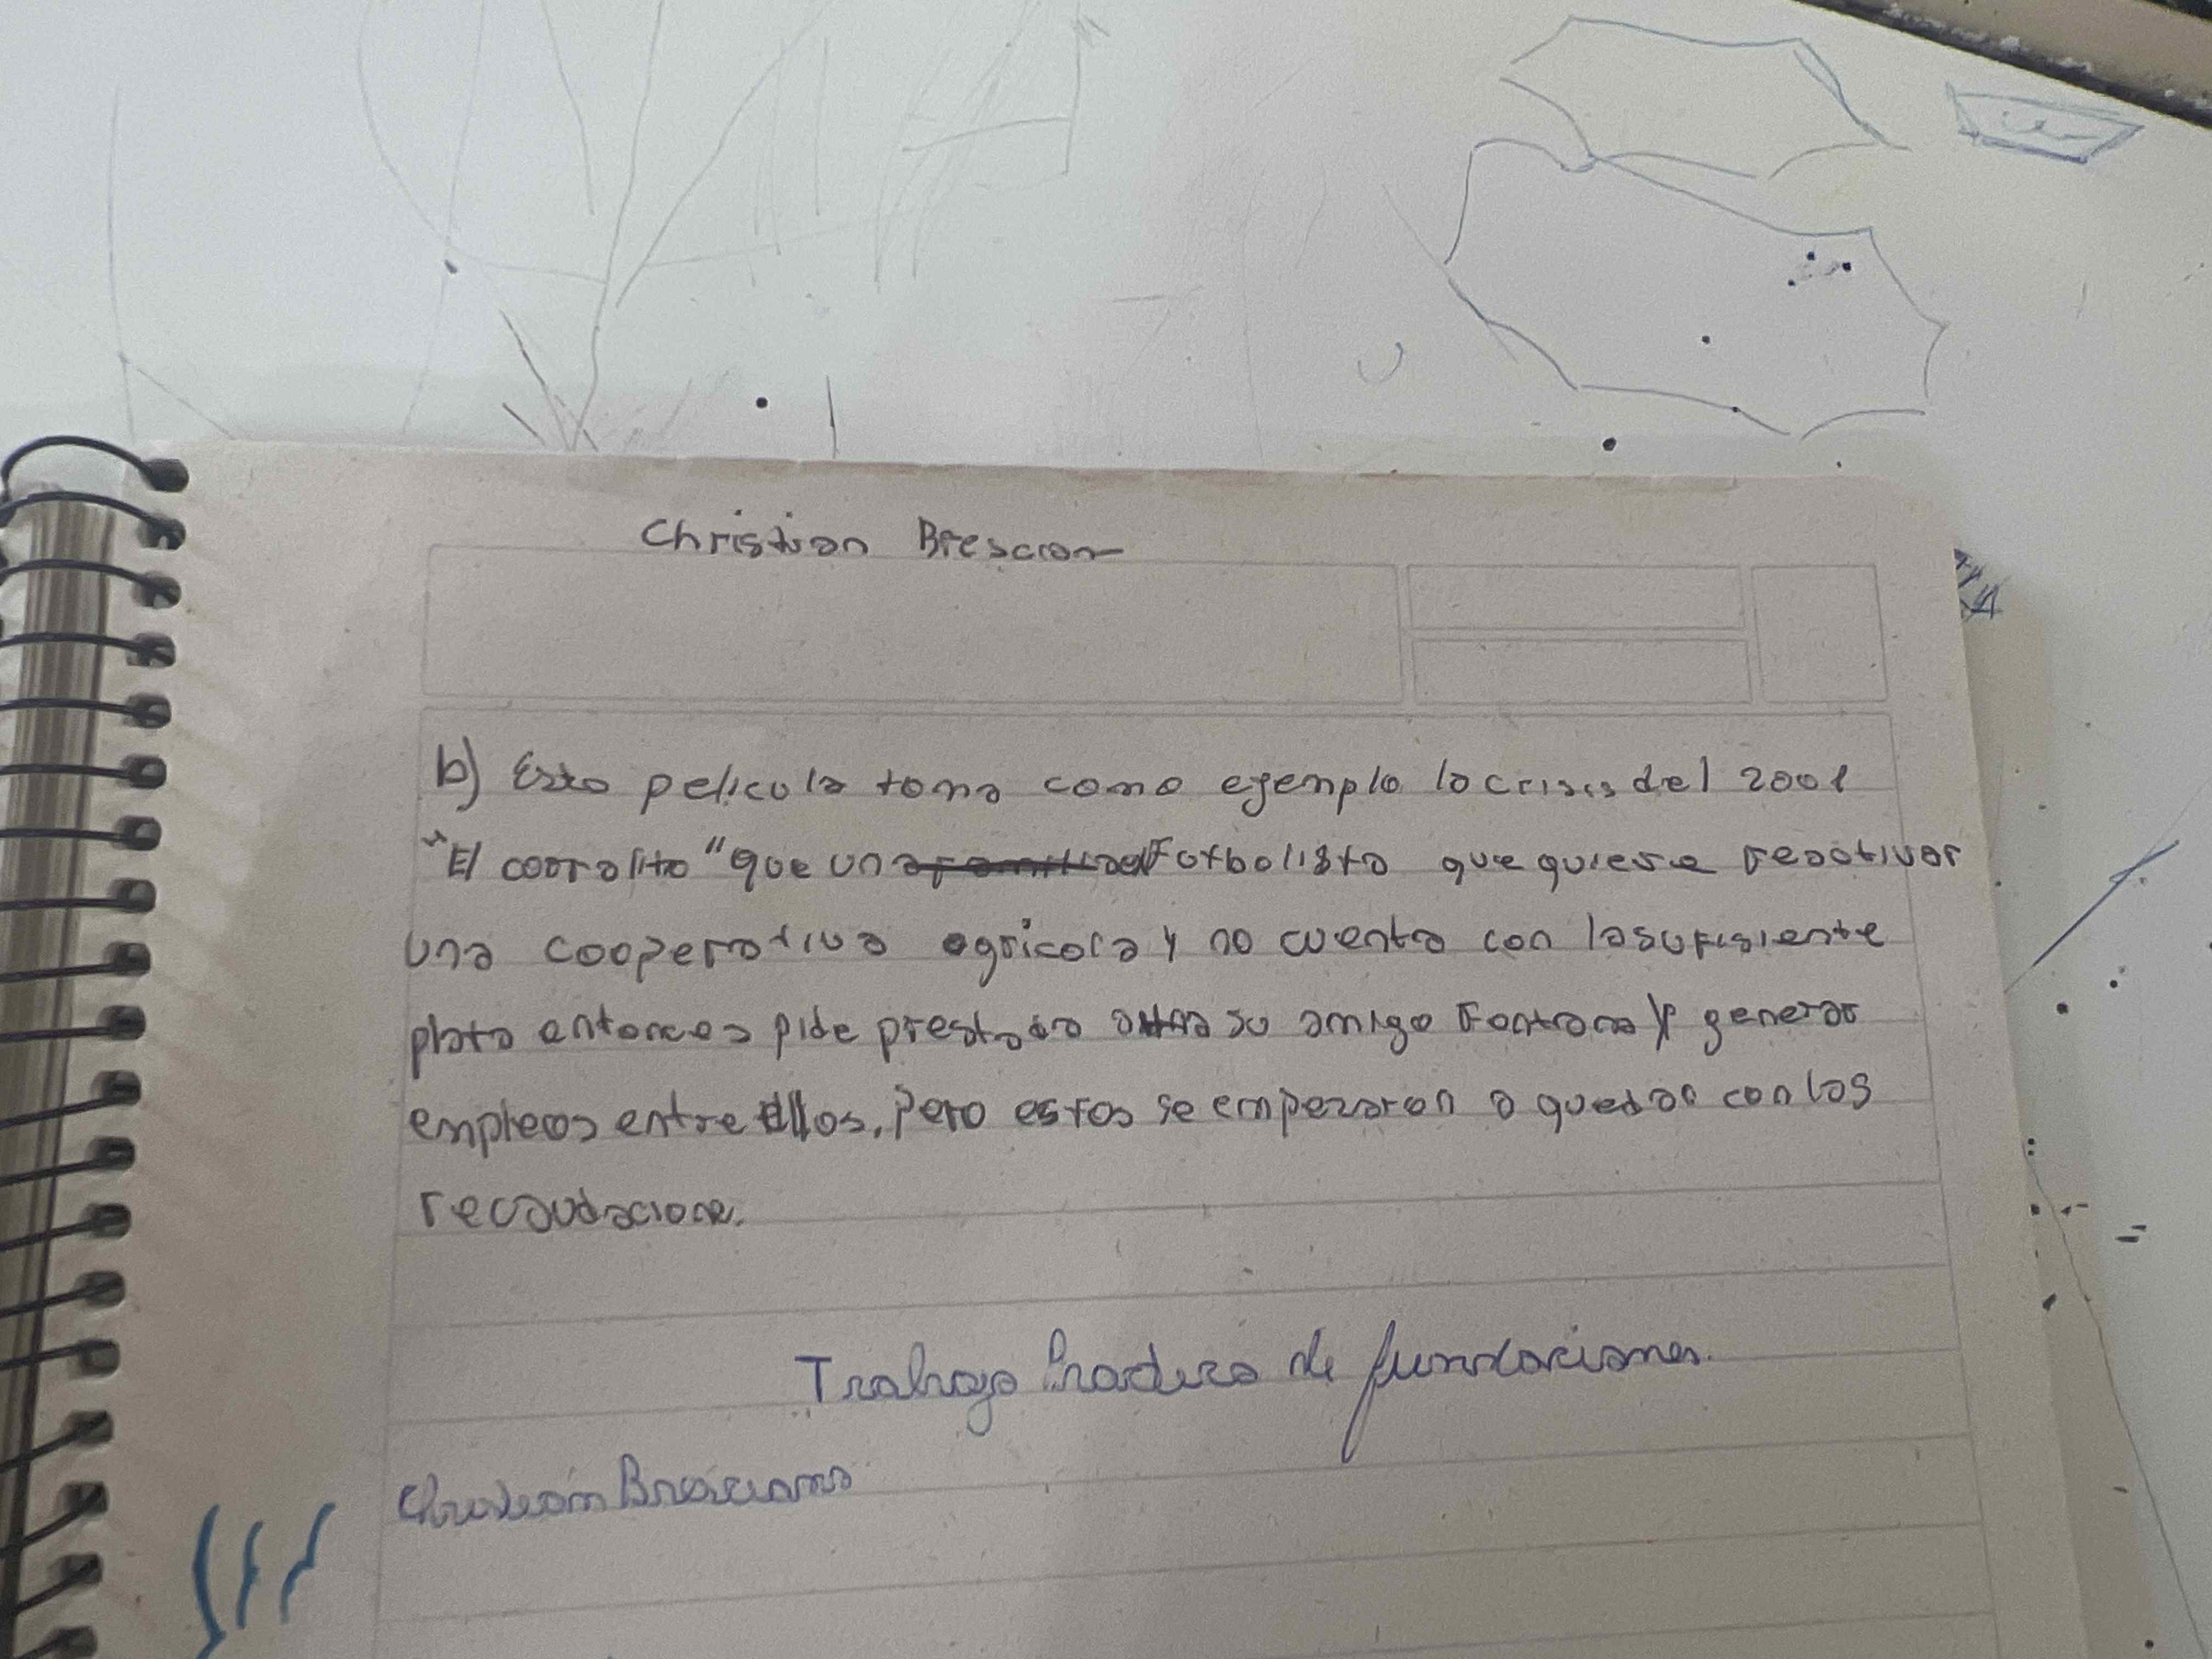 Christian Brescian
b) Esta pelicula toma como ejemplo la crisis del 2001
"El corralito" que un Futbolista que quiere reactivar
una cooperativa agricola y no cuenta con la sufisiente
plata entonces pide prestada a su amigo Fontana y generar
empleos entre ellos, pero estos se empezaron a quedar con las
recaudacione.
Trabajo Practico de fundaciones.
Christian Bresciano